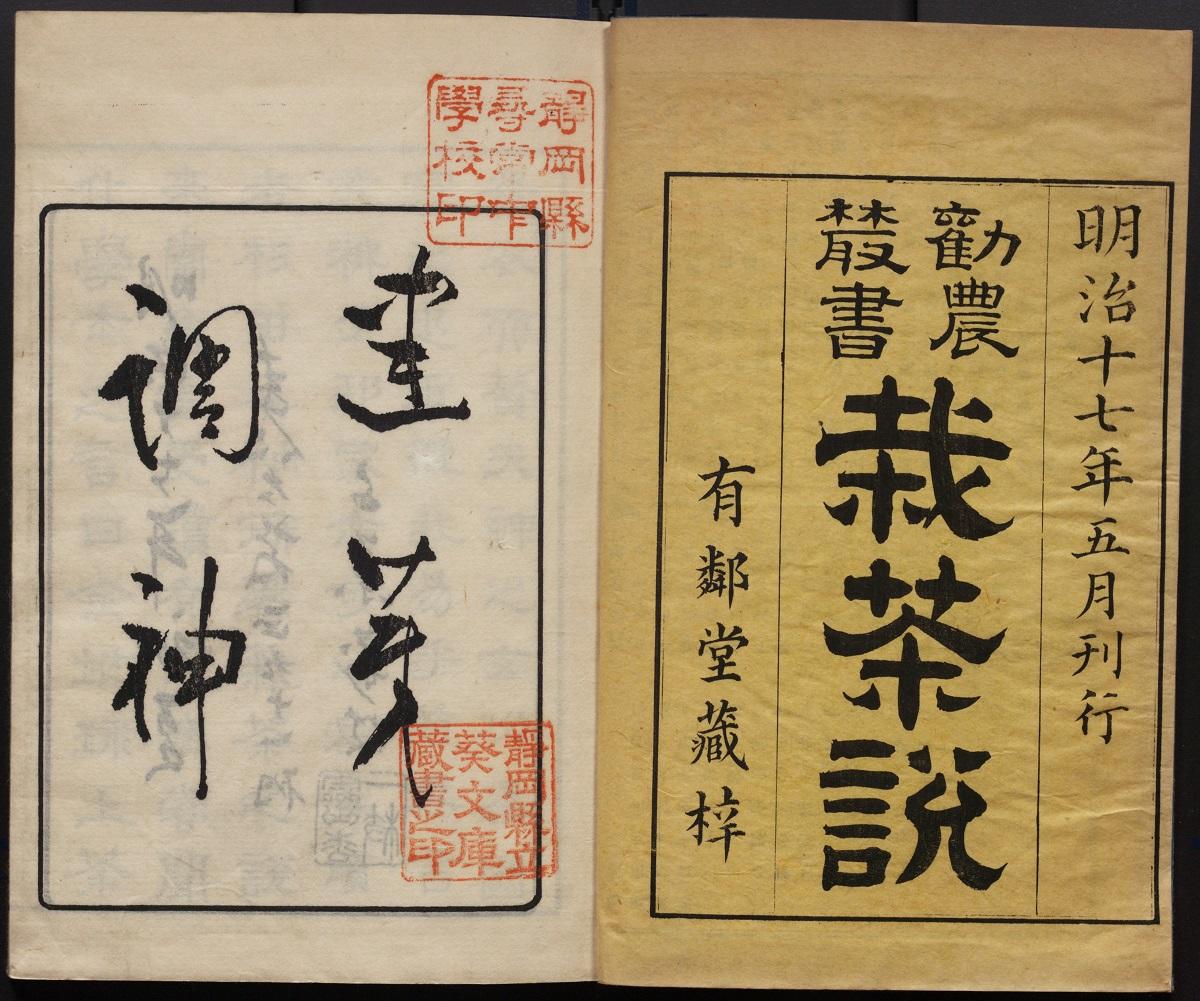 明治十七年五月刊行
勸農
叢書
栽茶說
有鄰堂藏梓
靜岡縣
尋常中
學校印
建芽
調神
靜岡縣立
葵文庫
藏書之印